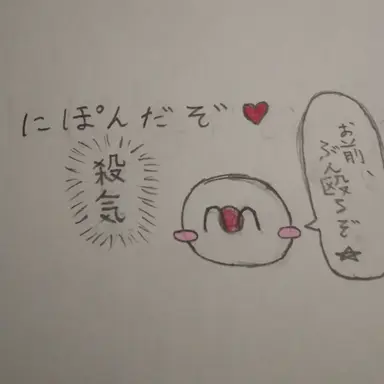 にぽんだぞ♥
殺気
お前、
ぶん殴るぞ★